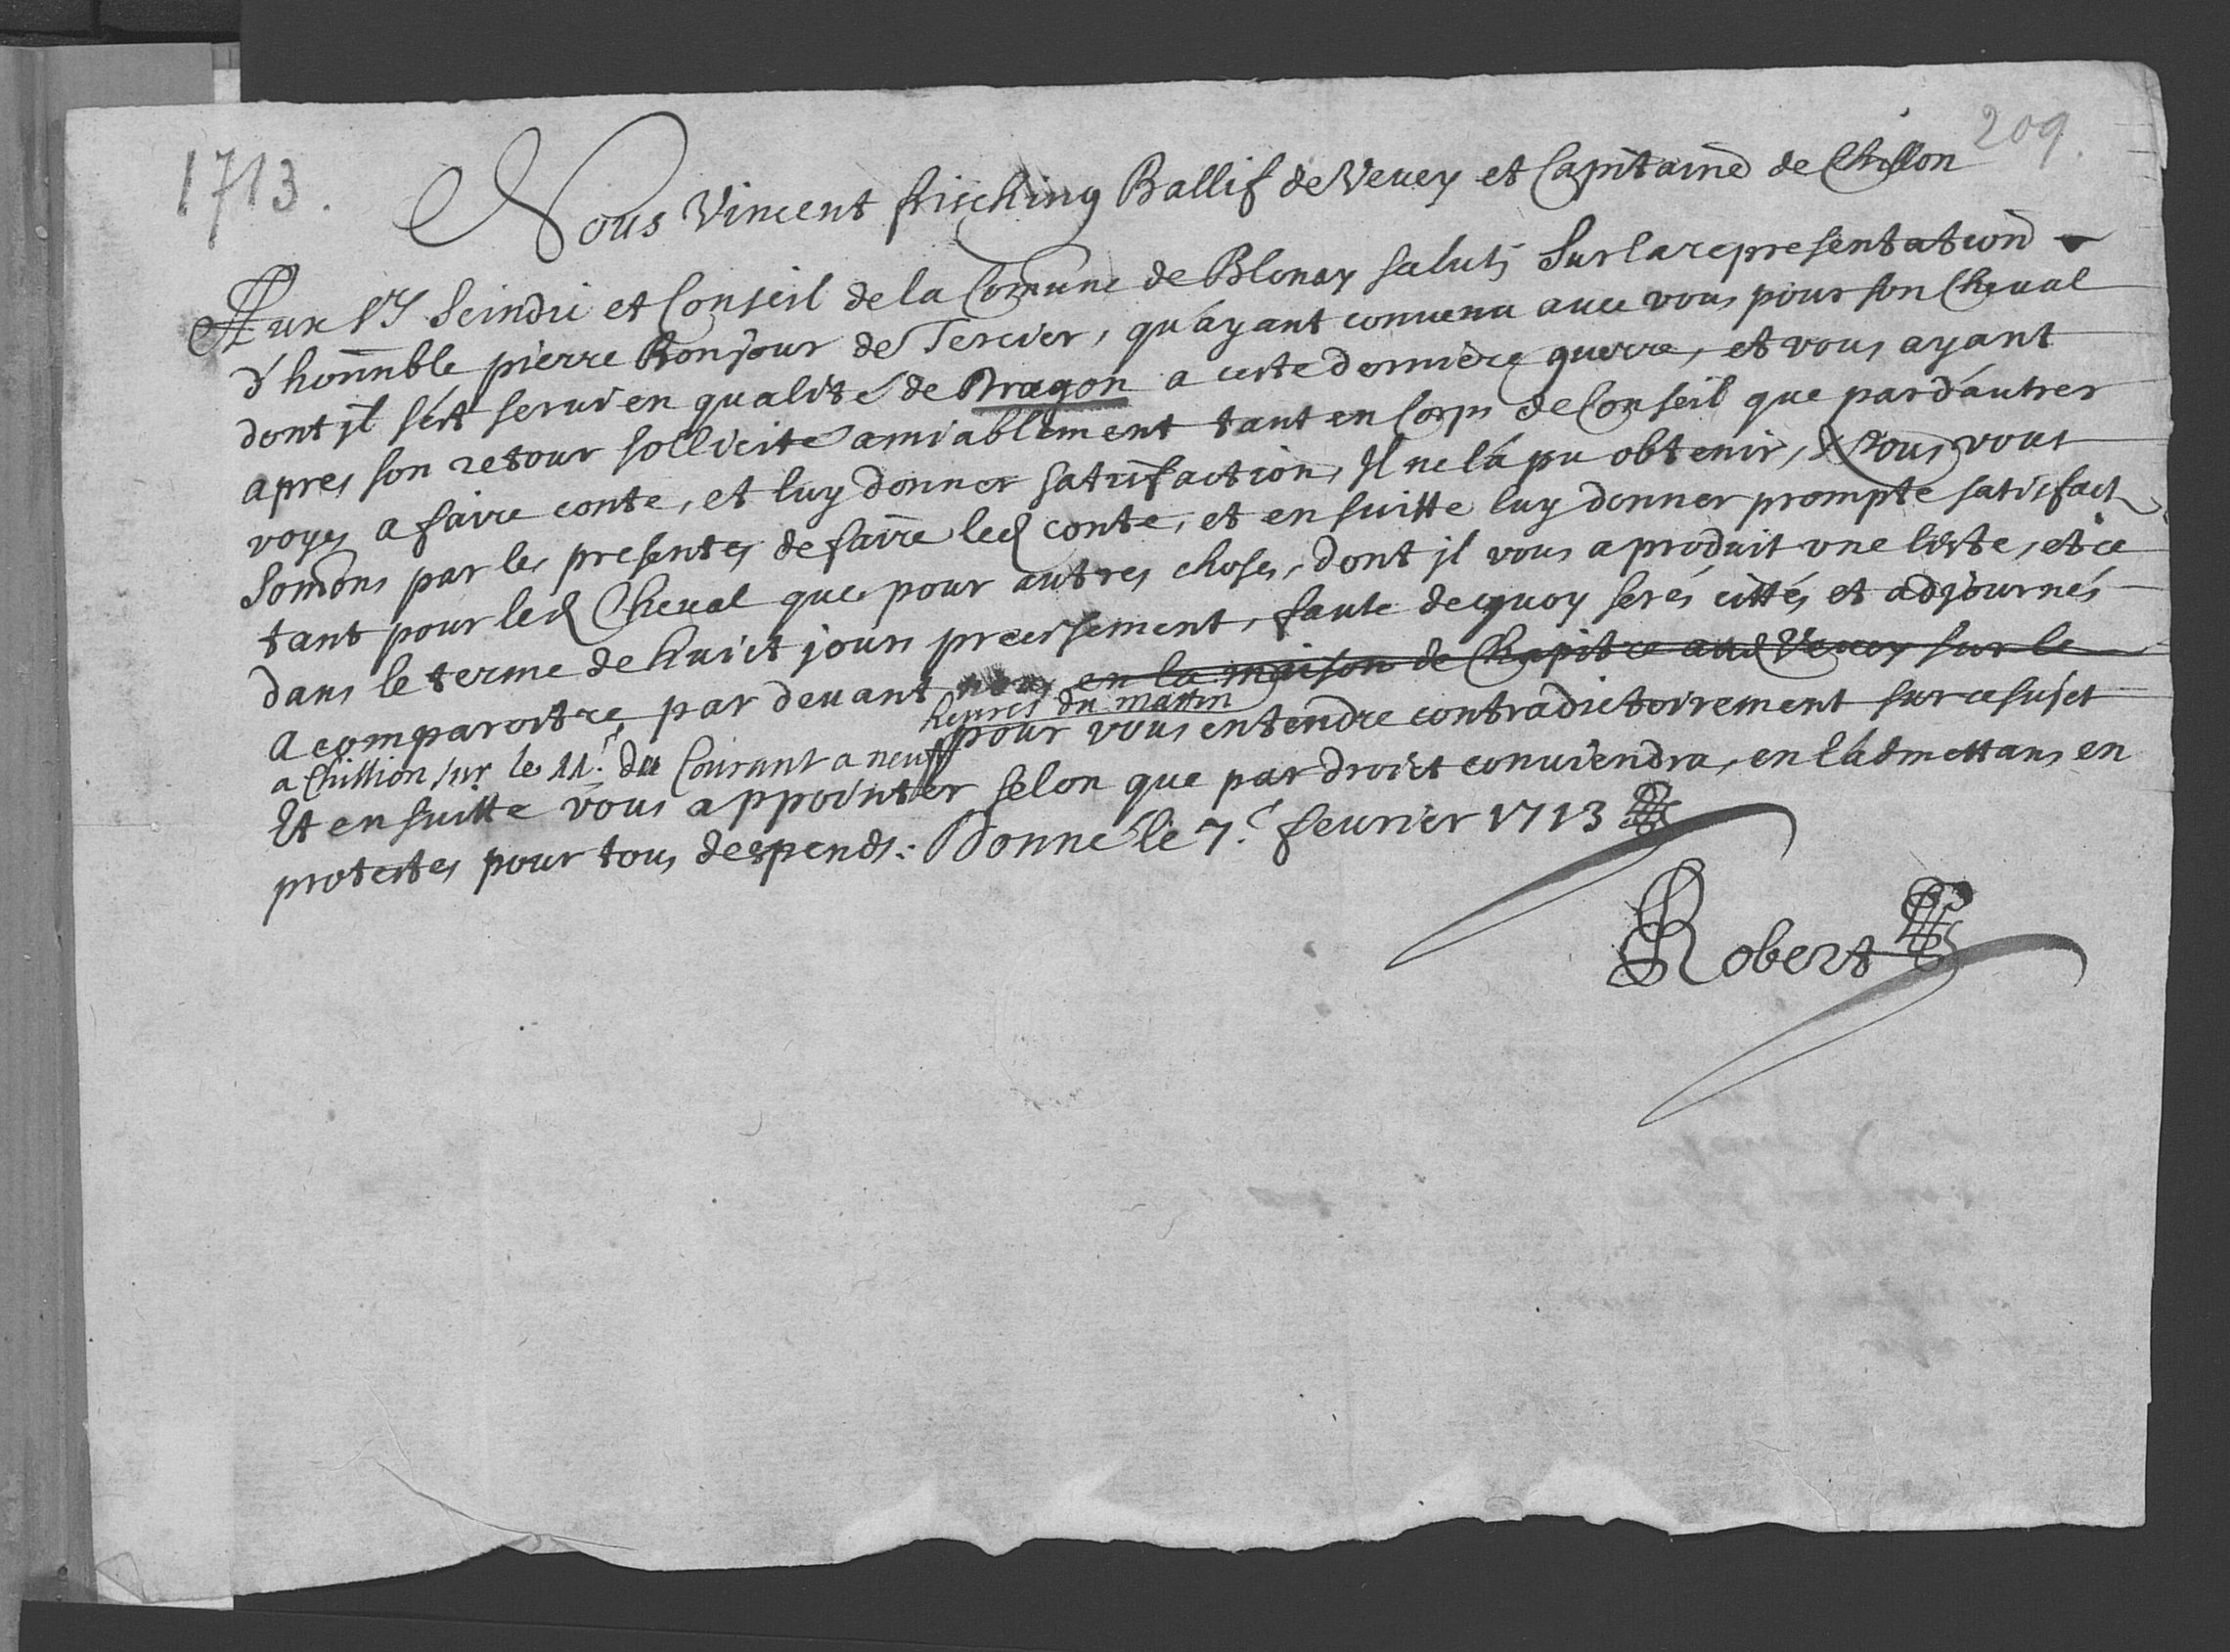 1713.
209.
Nous Vincent frisching Ballif de Vevey et Capitaine de Chillon
Aux Sr Scindic et Conseil de la Comune de Blonay salut; Sur la representation
d'honnble pierre Bonjour de Tercier, qu'ayant convenu avec vous pour son Cheval
dont jl s'est servi en qualité de Dragon a ceste derniere guerre, et vous ayant
apres son retour sollicité amiablement tant en Corps de Conseil que par d'autres
voyes a faire conte, et luy donner satisfaction, Jl ne l'a pu obtenir, Nous vous
Somons par les presentes de faire led conte, et ensuitte luy donner prompte satisfact
tant pour led Cheval que pour autres choses, dont jl vous a produit une liste, et ce
dans le terme de huict jours precisement, faute dequoy serés cittés et adjournés
a comparoitre par devant nous en la maison de Chapitre aud Vevey sur le
a Chillion sur le 11e. du Courant a neuf heures du mattin
pour vous entendre contradictoirement sur ce sujet
Et ensuitte vous appointer selon que par droict conviendra, en l'admettans en
protestes pour tous despends. Donné le 7e. fevrier 1713
Robert